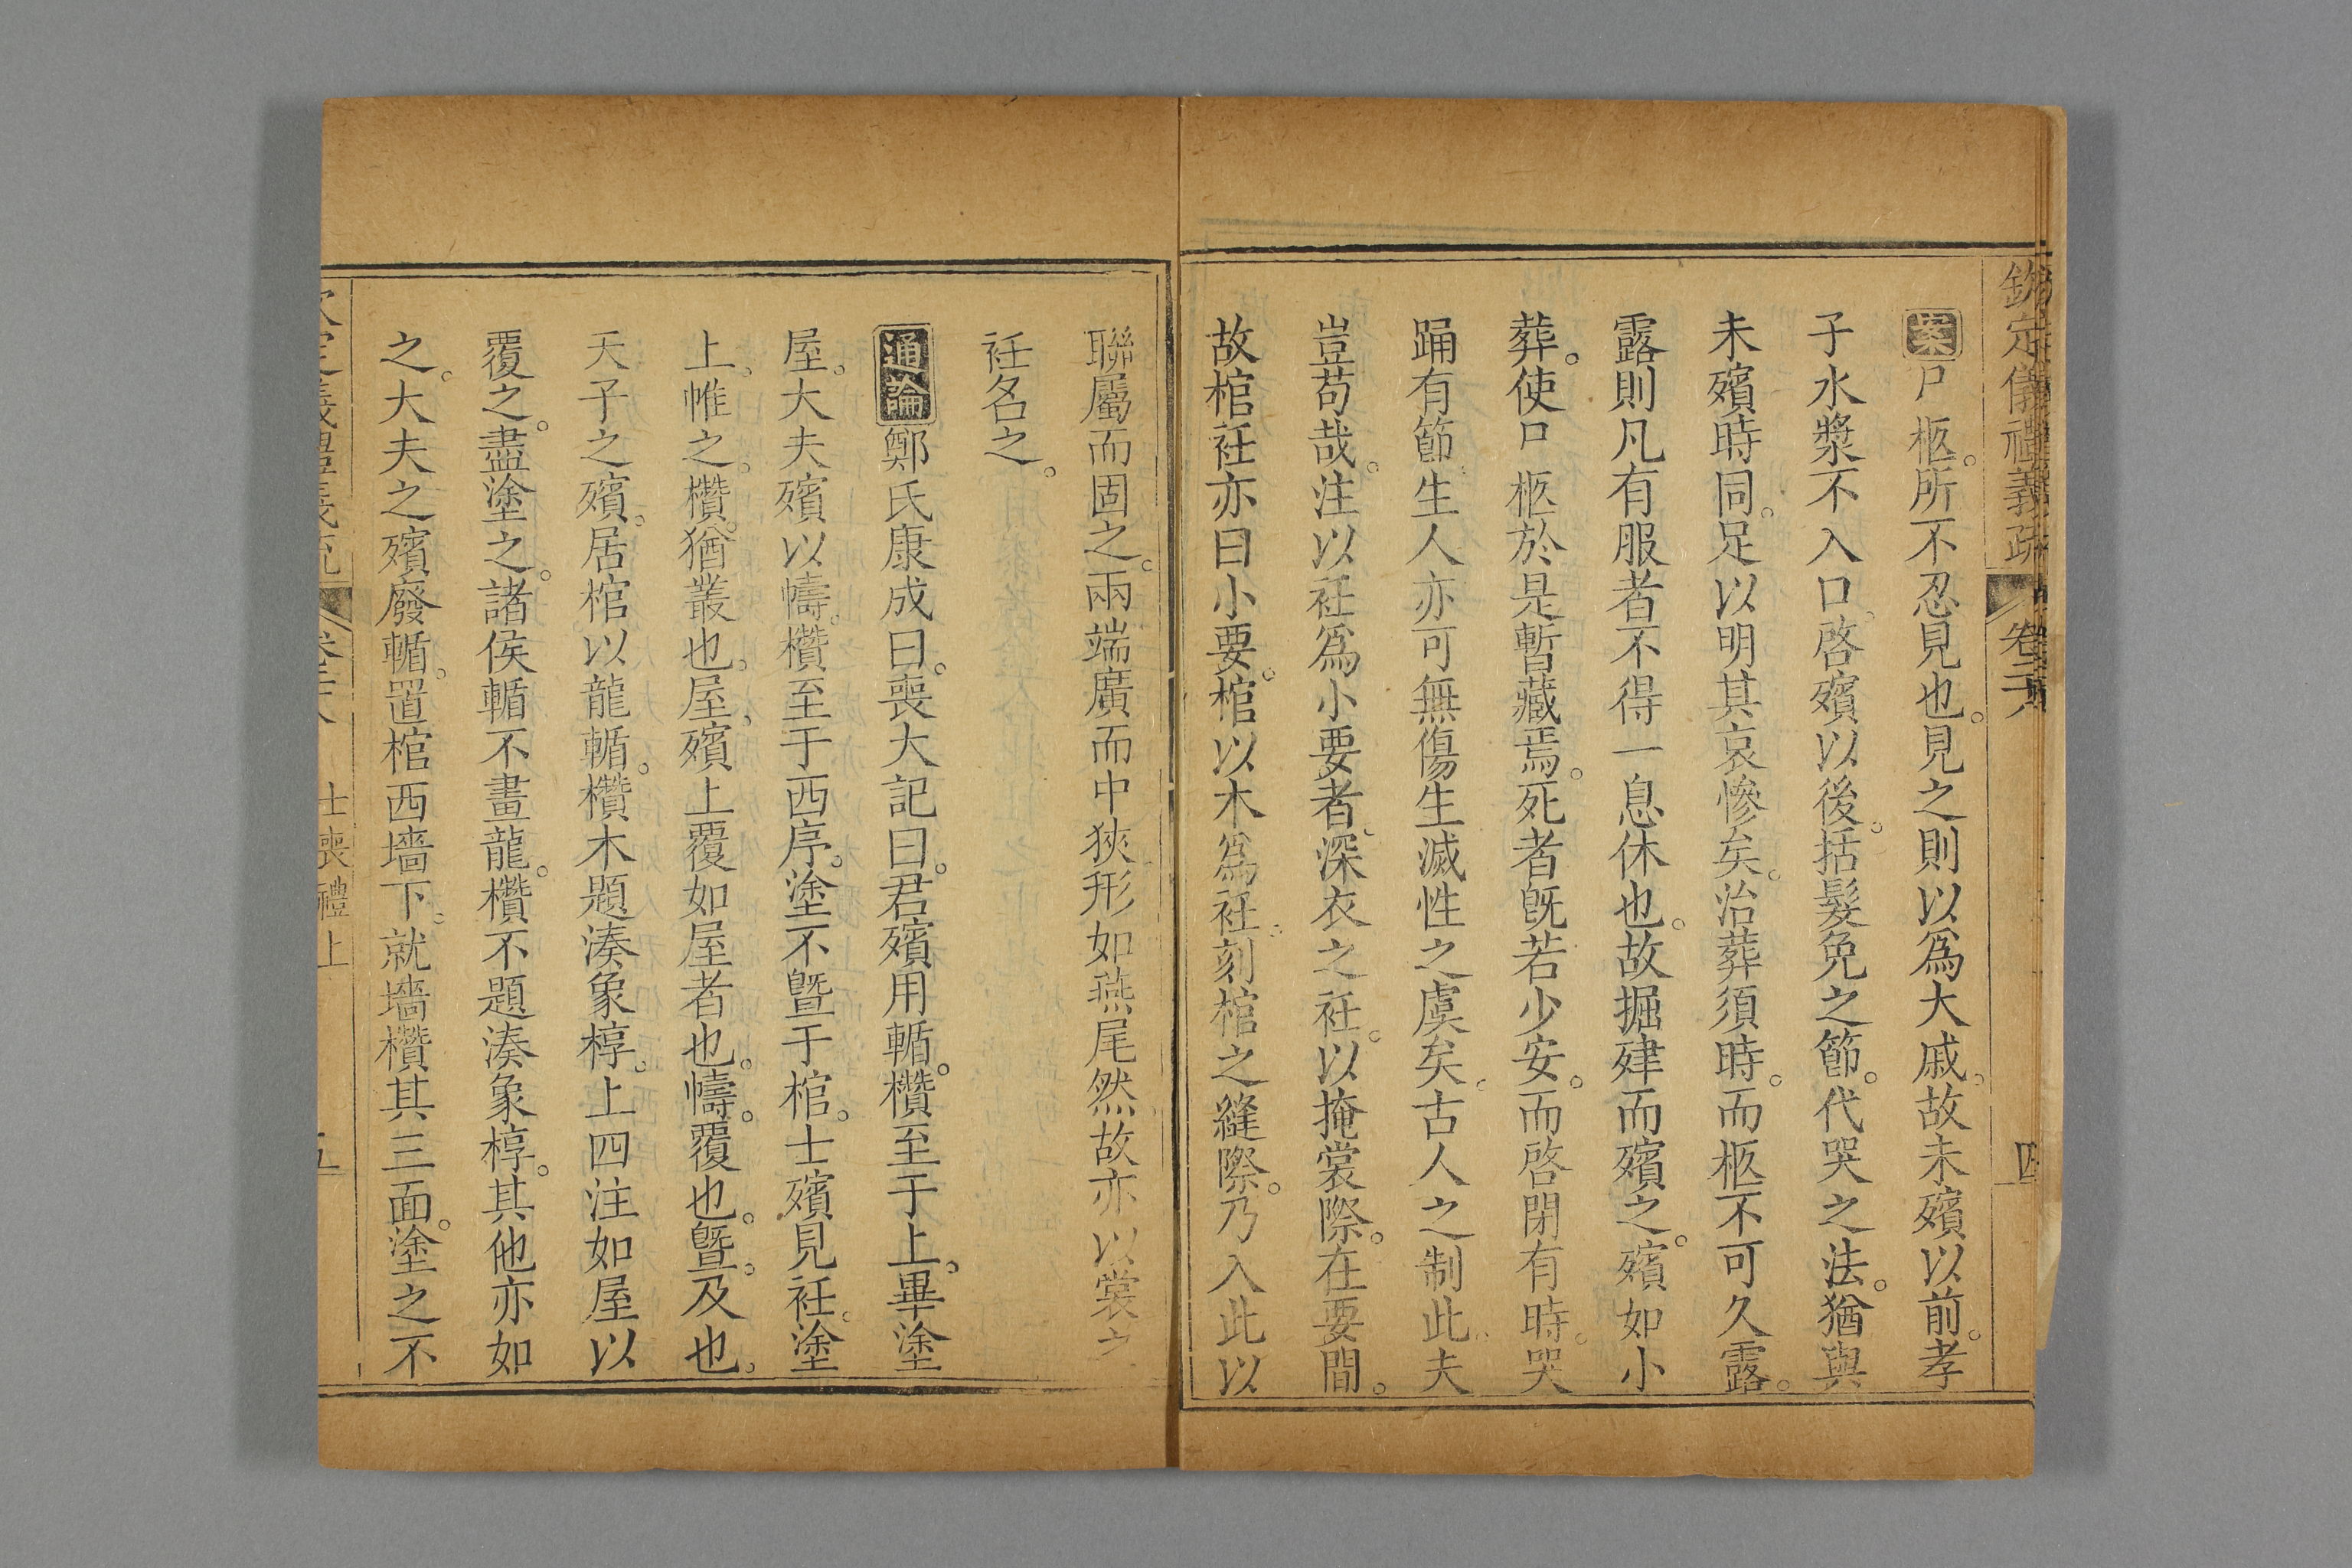 欽定儀禮義疏 卷二十八 四
案尸柩。所不忍見也。見之則以爲大戚。故未殯以前。孝
子水漿不入口。啓殯以後。括髮免之節。代哭之法。猶與
未殯時同。足以明其哀慘矣。治葬須時。而柩不可久露。
露則凡有服者不得一息休也。故掘肂而殯之。殯如小
葬。使尸柩於是暫藏焉。死者旣若少安。而啓閉有時。哭
踊有節。生人亦可無傷生滅性之虞矣。古人之制此。夫
豈苟哉。注以衽爲小要者。深衣之衽。以掩裳際。在要間。
故棺衽亦曰小要。棺以木爲衽。刻棺之縫際。乃入此以
聯屬而固之。兩端廣而中狹。形如燕尾然故亦以裳之
衽名之。
通論鄭氏康成曰。喪大記曰。君殯用輴。欑至于上。畢塗
屋。大夫殯以幬。欑至于西序。塗不曁于棺。士殯見衽。塗
上。帷之。欑。猶叢也。屋、殯上覆如屋者也。幬。覆也。曁。及也。
天子之殯。居棺以龍輴。欑木題湊象椁。上四注如屋以
覆之。盡塗之。諸侯輴不畫龍。欑不題湊象椁。其他亦如
之。大夫之殯廢輴。置棺西墻下。就墻欑其三面。塗之不
士喪禮上 五